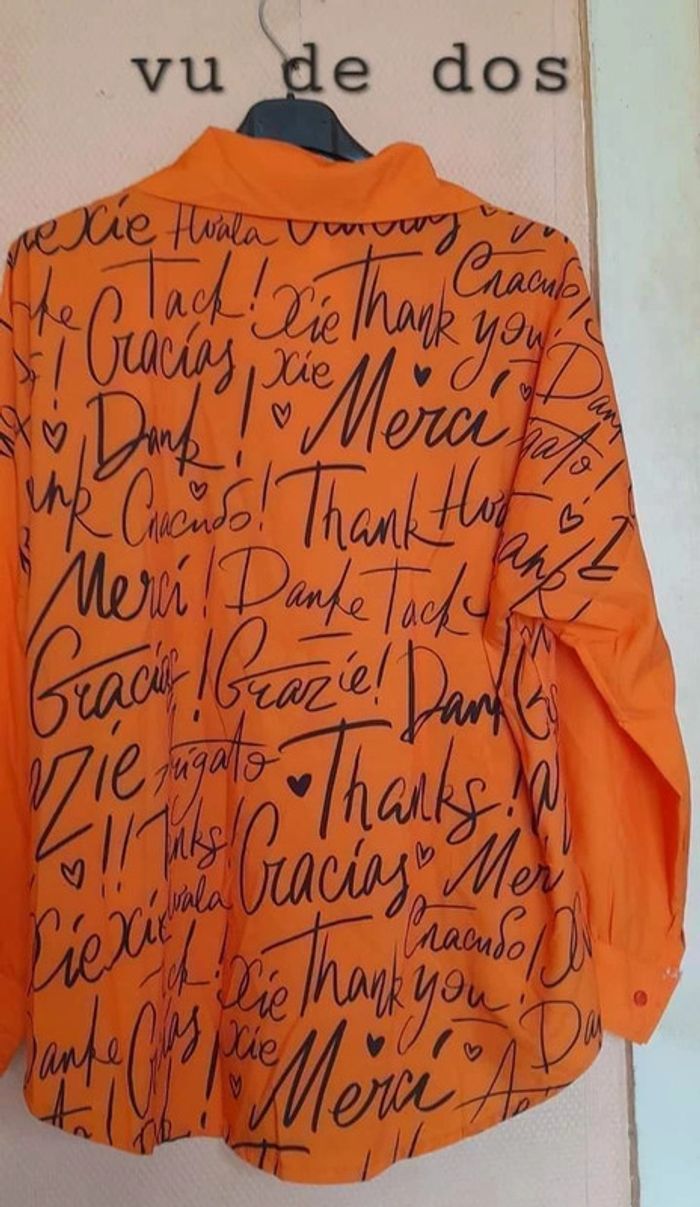 vu de dos
Xie Hvala
Tack! Xie Thank you! Спасибо!
Gracias, xie
Dank! Merci
Спасибо! Thank
Merci! Danke Tack
Gracias! Grazie! Dank
Thanks!
!! Gracias
Xie Xie Спасибо!
Xie Thank you!
Danke xie
Merci